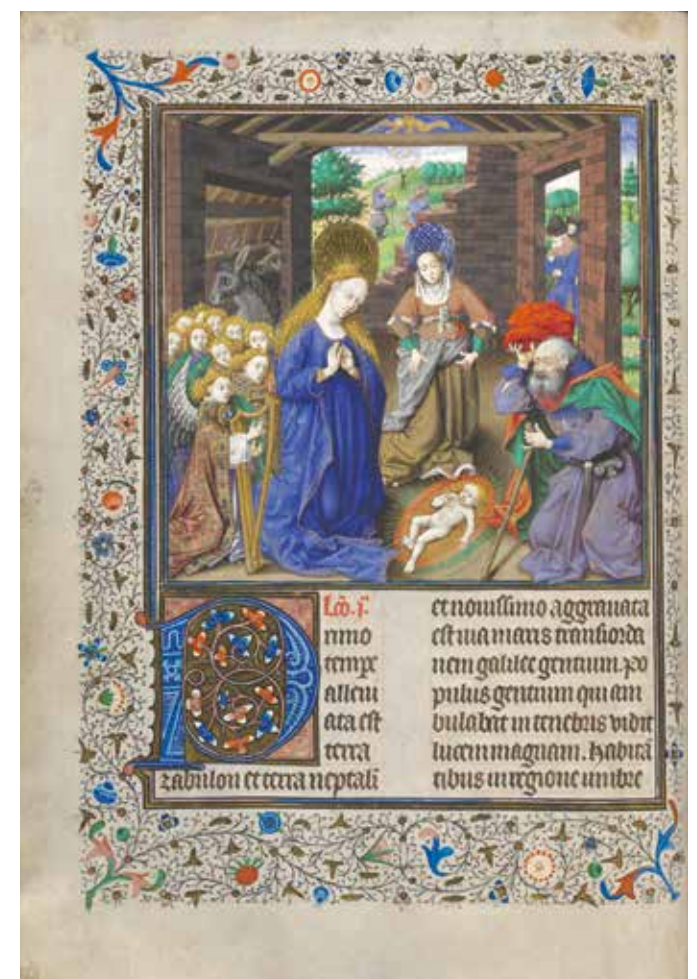 Lcō. j.
Primo
tempe
alleui
ata est
terra
zabulon et terra neptali
et nouissimo aggrauata
est uia maris transiorda
nem galilee gentium. po
pulus gentium qui am
bulabat in tenebris vidit
lucem magnam. Habitā
tibus in regione umbre